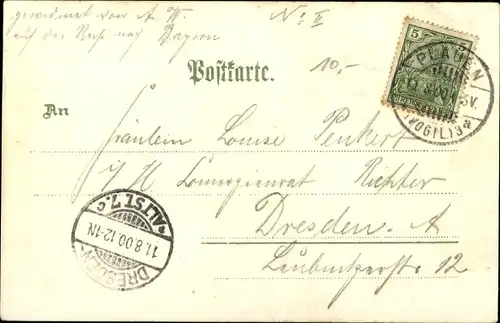 gewidmet von A. W. No II
auf der Reise nach Bayern
10,-
Postkarte.
5
PLAUEN
8.00
(VOGTL)3a
An
Fräulein Louise Penkert
i/H Commerzienrat Richter
Dresden-A
Laubnitzerstr 12
DRESDEN
ALTST. 7.c
11.8.00.12-1N